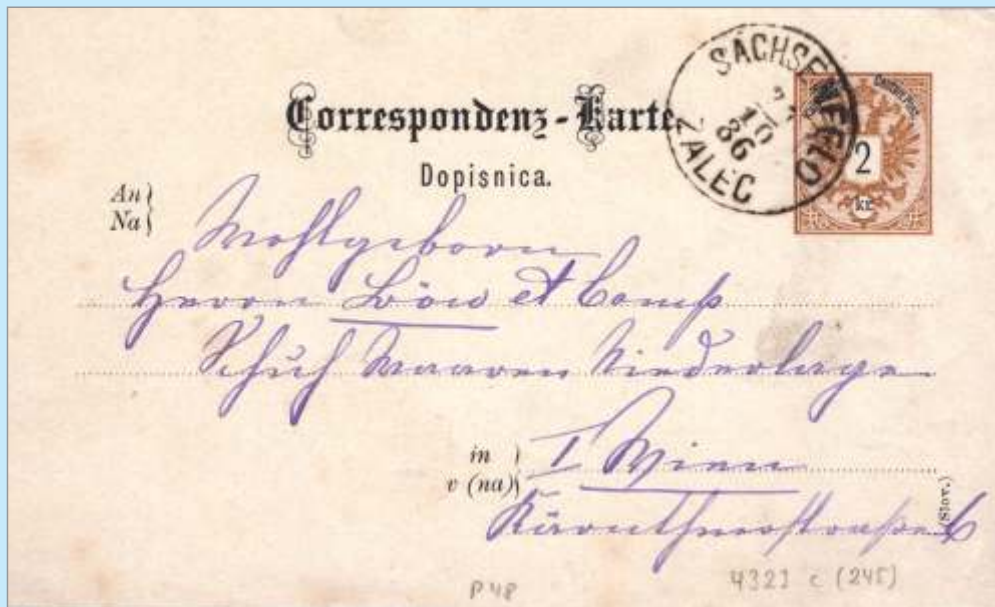 Correspondenz-Karte
Dopisnica.
SACHSENFELD
10
86
ŽALEC
2
kr.
An
Na
Wohlgeborn
Herrn Löw et Comp
Schuh Waaren Niederlage
in
v (na)
I Wien
Kärnthnerstrasse
(Slov.)
P48
4323 c (245)